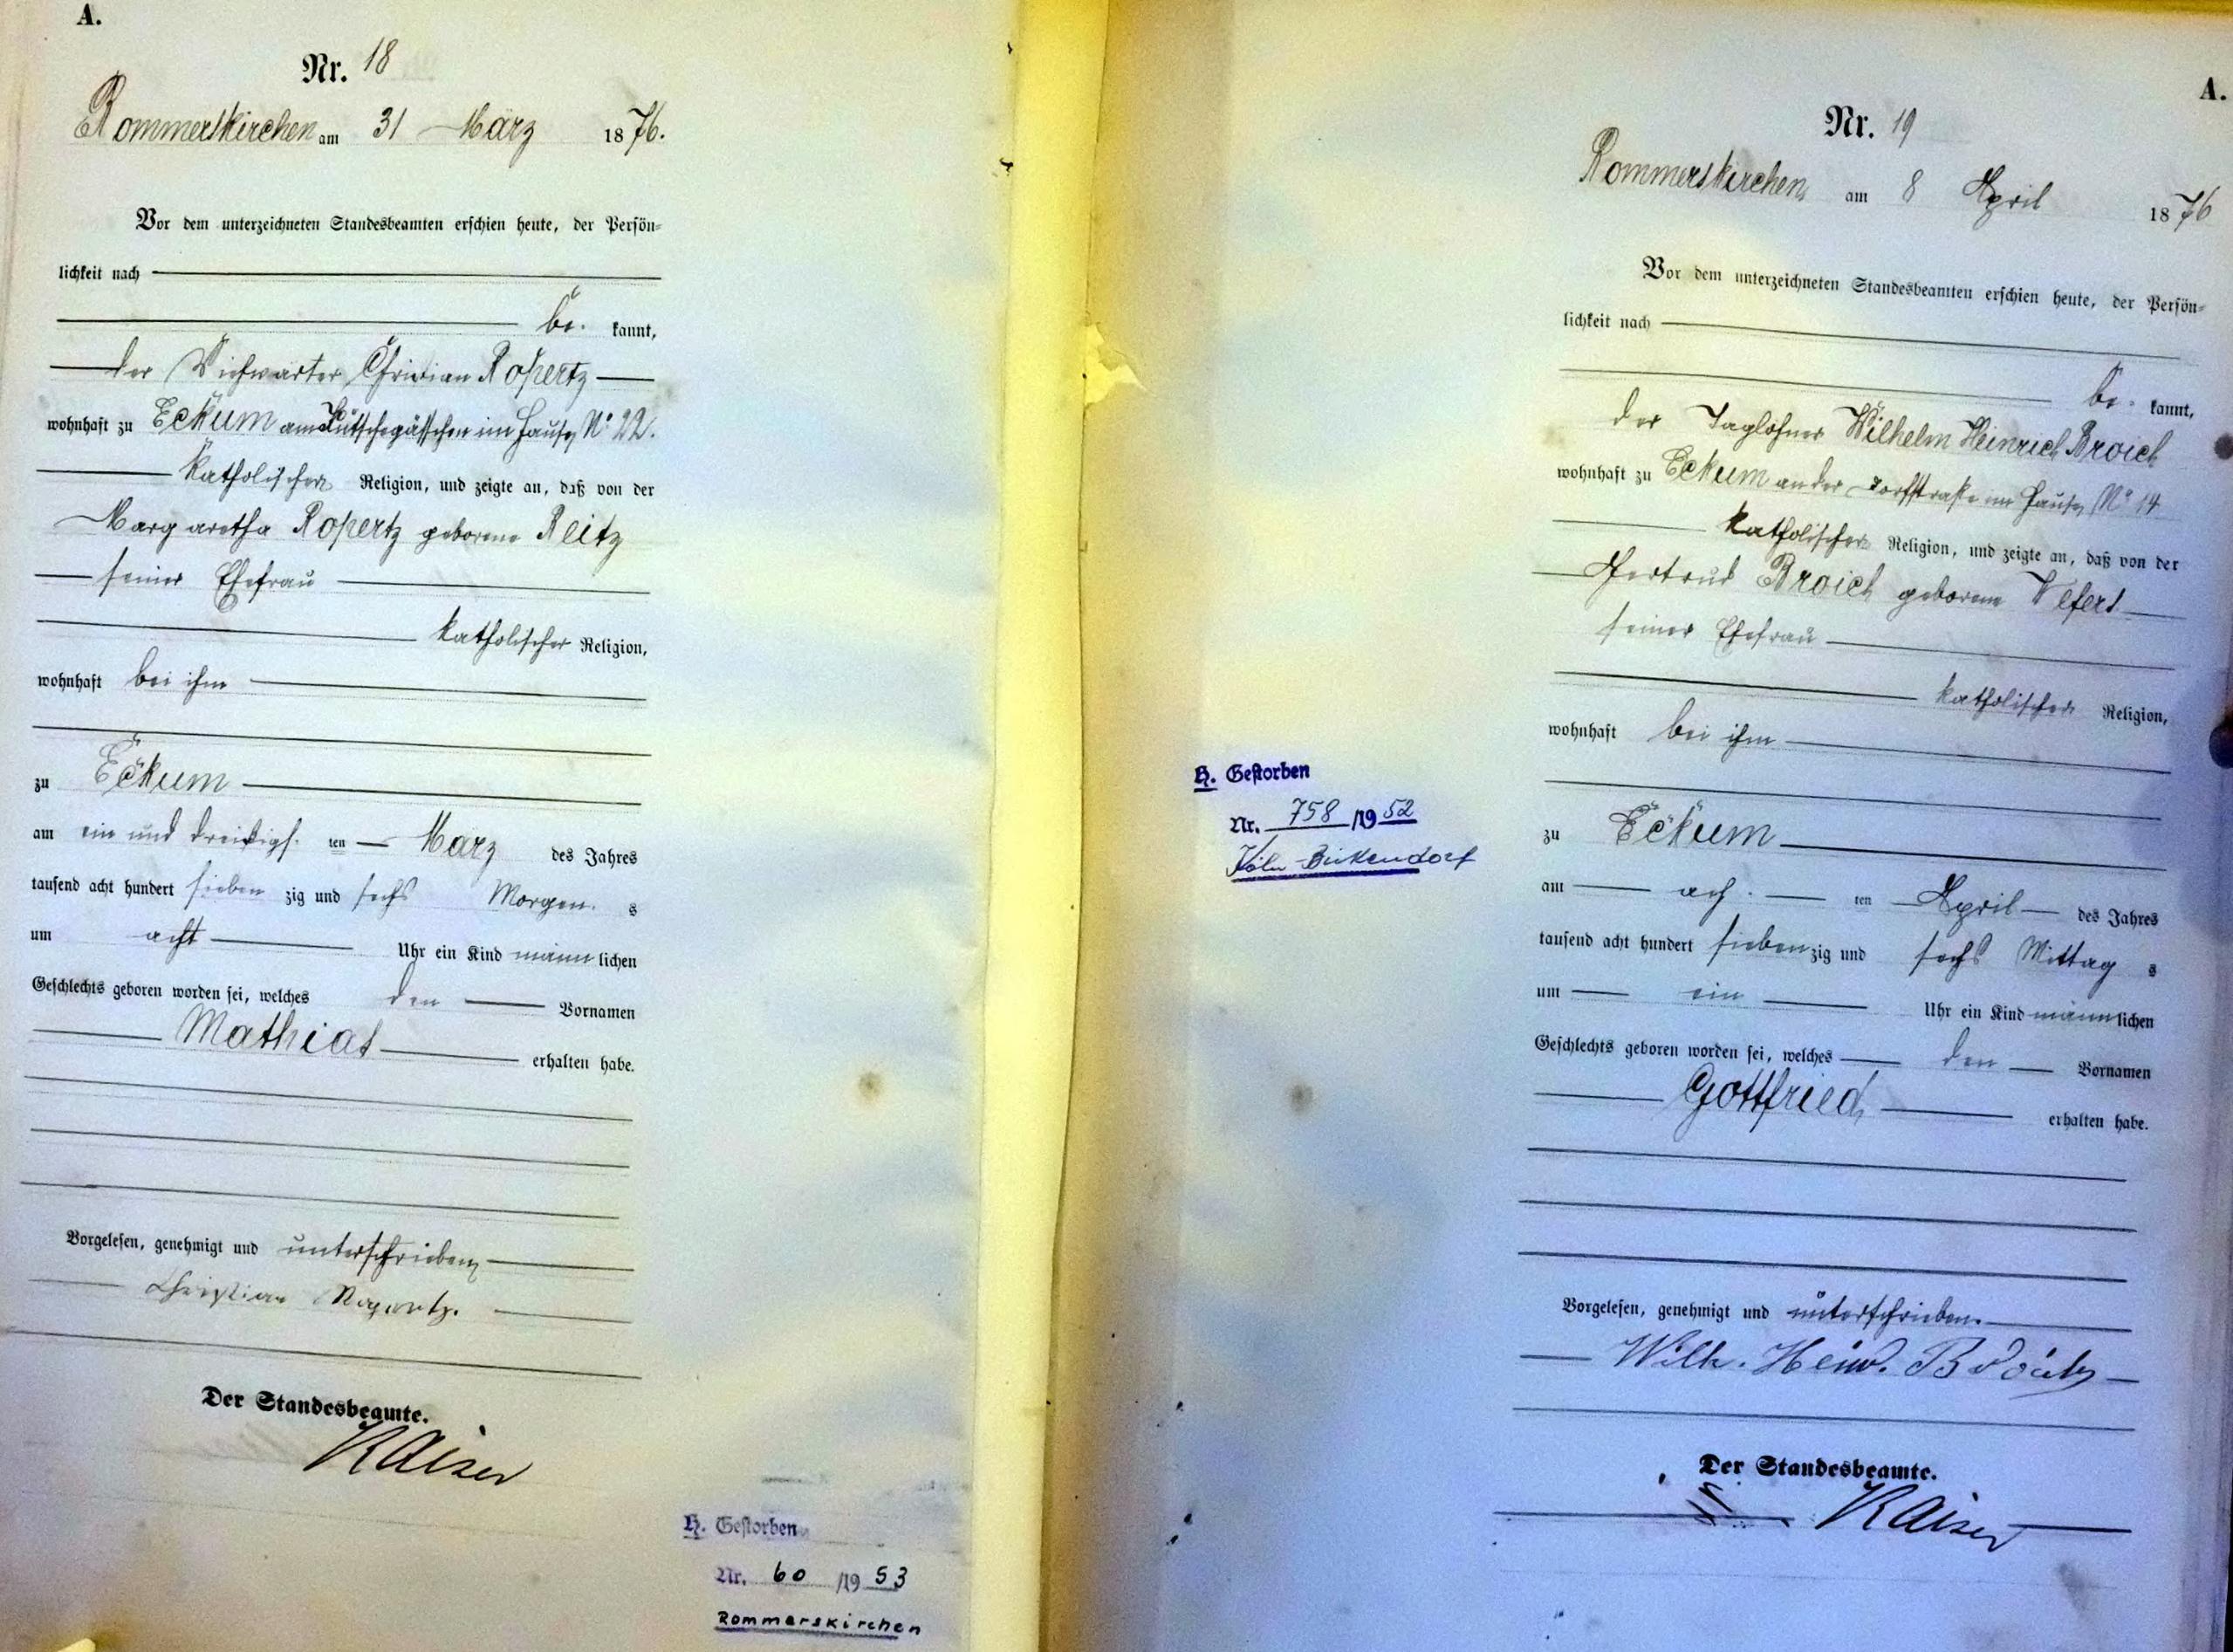 A.
Nr. 18
Rommerskirchen am 31 März 1876.
Vor dem unterzeichneten Standesbeamten erschien heute, der Persön=
lichkeit nach
be. kannt,
der Viehwärter Christian Ropertz
wohnhaft zu Eckum am im Hause No 22.
katholischer Religion, und zeigte an, daß von der
Margaretha Ropertz geborene Reitz
seiner Ehefrau
katholischer Religion,
wohnhaft bei ihm
zu Eckum
am ein und dreißigs. ten März des Jahres
tausend acht hundert sieben zig und sechs Morgen. s
um acht Uhr ein Kind männ lichen
Geschlechts geboren worden sei, welches den Vornamen
Mathias erhalten habe.
Vorgelesen, genehmigt und unterschrieben
Christian Ropertz.
Der Standesbeamte.
Kaiser
H. Gestorben
Nr. 60 /19 53
Rommerskirchen
A.
Nr. 19
Rommerskirchen am 8 April 1876
Vor dem unterzeichneten Standesbeamten erschien heute, der Persön=
lichkeit nach
be. kannt,
der Taglöhner Wilhelm Heinrich Broich
wohnhaft zu Eckum an der Dorfstraße im Hause No 14
katholischer Religion, und zeigte an, daß von der
Gertrud Broich geborene Wefers
seiner Ehefrau
katholischer Religion,
wohnhaft bei ihm
zu Eckum
am ach. ten April des Jahres
tausend acht hundert sieben zig und sechs Mittag s
um ein Uhr ein Kind männ lichen
Geschlechts geboren worden sei, welches den Vornamen
Gottfried erhalten habe.
Vorgelesen, genehmigt und unterschrieben.
Wilh. Heinr. Broich
Der Standesbeamte.
Kaiser
H. Gestorben
Nr. 758 /19 52
Köln-Bickendorf